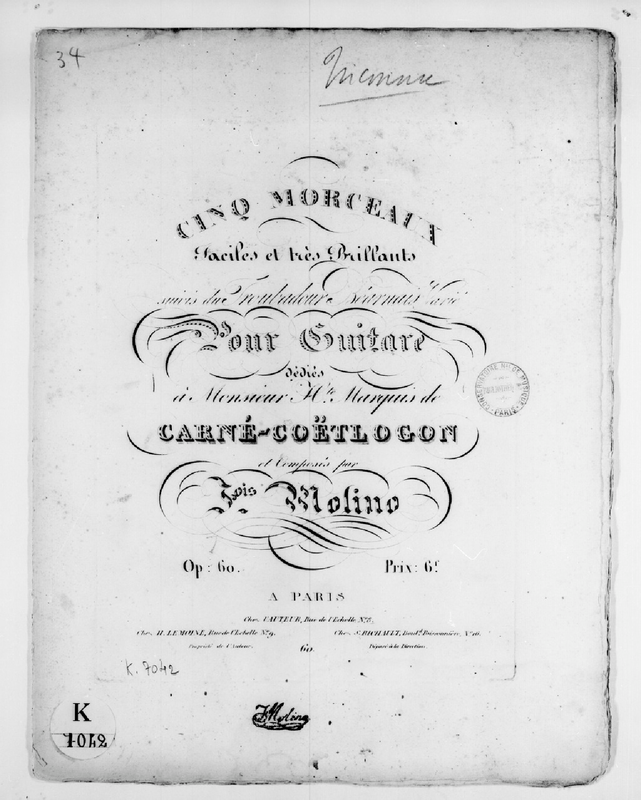 34
CINQ MORCEAUX
Faciles et très Brillants
suivis du Troubadour Béarnais Varié
Pour Guitare
dédiés
à Monsieur H.te Marquis de
CARNÉ-COËTLOGON
et Composés par
F.ois Molino
Op: 60. Prix: 6f
A PARIS
Chez l'AUTEUR, Rue de l'Echelle N.º 8,
Chez H. LEMOINE, Rue de l'Echelle N.º 9. Chez S. RICHAULT, Boul.d Poissonnière, N.º 16.
Propriété de l'Auteur. 60. Déposé à la Direction
K. 7042
K
7042
FMolino